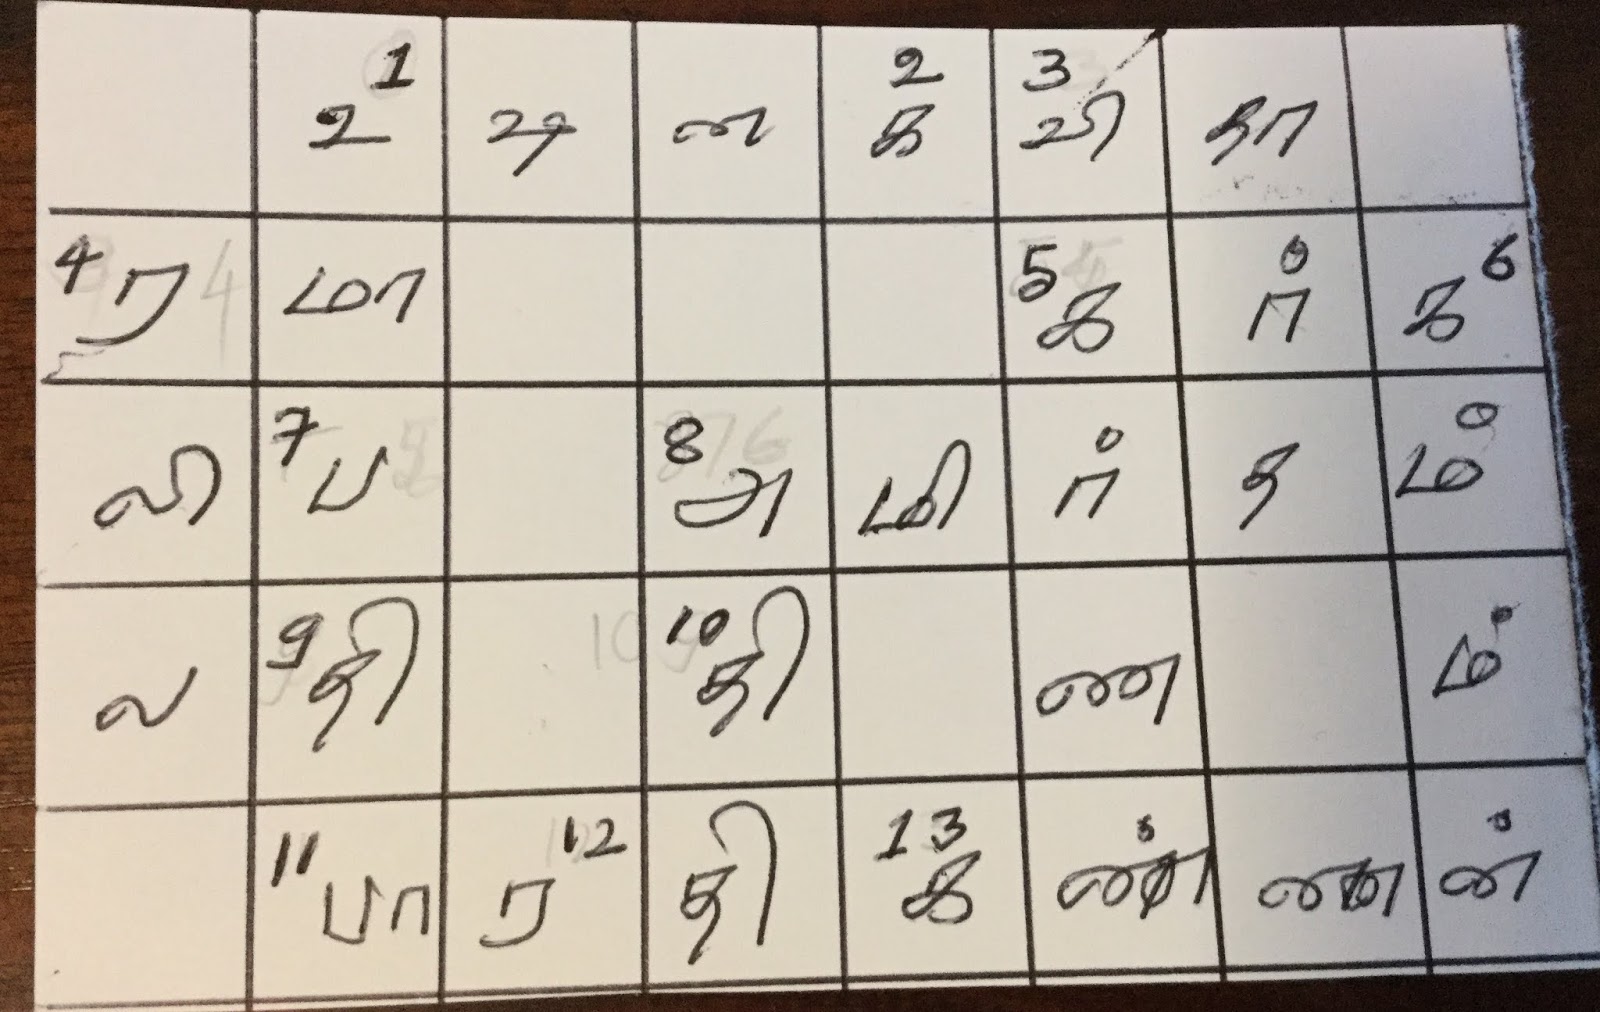 1 உ ட ன 2 க 3 வி தா
4 ற மா 5 க ர் 6 க
லி 7 ப 8 அ மி ர் த ம்
ல 9 தி 10 தி ண ம்
11 பா ர 12 தி 13 க ண் ண ன்